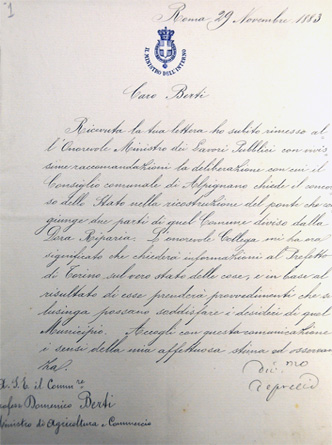 1
Roma, 29 Novembre 1883
IL MINISTRO DELL'INTERNO
Caro Berti
Ricevuta la tua lettera ho subito rimesso al
l'Onorevole Ministro dei Lavori Pubblici con vivis
sime raccomandazioni la deliberazione con cui il
Consiglio comunale di Alpignano chiede il concor
so dello Stato nella ricostruzione del ponte che con
giunge due parti di quel Comune diviso dalla
Dora Riparia. L'onorevole Collega mi ha ora
significato che chiederà informazioni al Prefetto
di Torino sul vero stato delle cose, e in base al
risultato di esse prenderà provvedimenti che
lusinga possano soddisfare i desideri di quel
Municipio. Accogli con questa comunicazione
i sensi della mia affettuosa stima ed osservan
za.
A S. E. il Comm.re
Professor Domenico Berti
Ministro di Agricoltura e Commercio